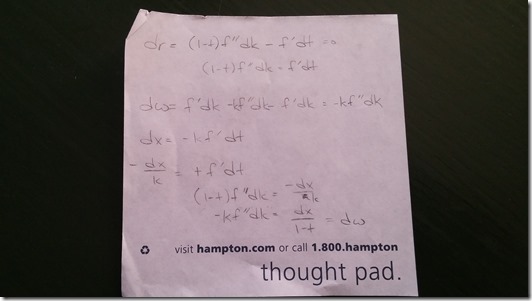 dr = (1-t)f''dk - f'dt =0
(1-t)f'dk - f'dt
dw= f'dk -kf''dk- f'dk = -kf''dk
dx= -kf'dt
- dx/k = +f'dt
(1-t)f''dk= -dx/k
-kf''dk= dx/1-t = dw
visit hampton.com or call 1.800.hampton
thought pad.